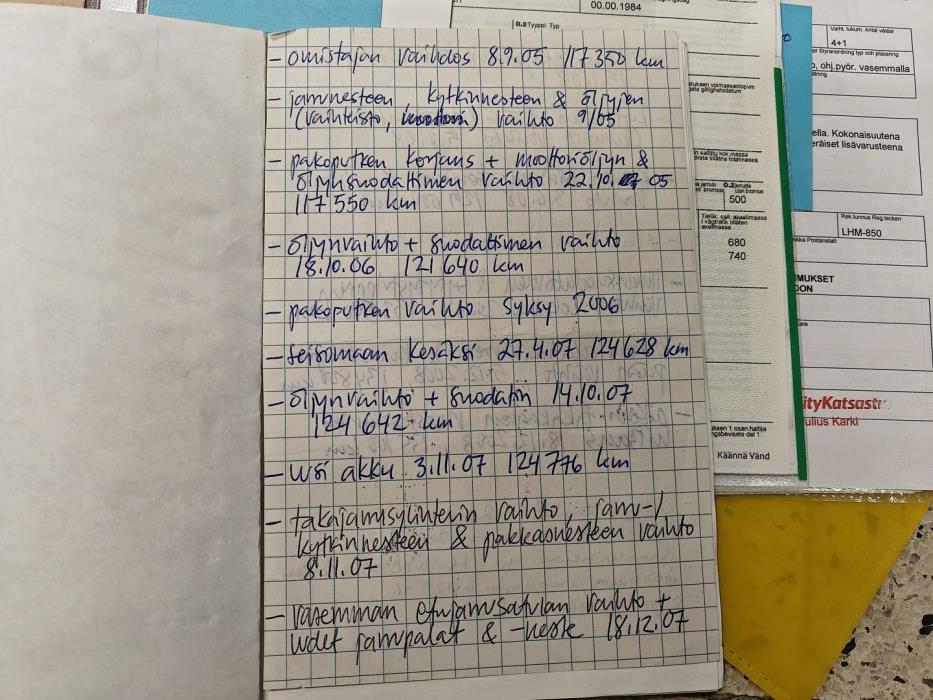 - omistajan vaihdos 8.9.05 117 350 km
- jarrunesteen, kytkinnesteen & öljyjen
(vaihteisto, ) vaihto 9/05
- pakoputken korjaus + moottoriöljyn &
öljynsuodattimen vaihto 22.10. 05
117 550 km
- öljynvaihto + suodattimen vaihto
18.10.06 121 640 km
- pakoputken vaihto syksy 2006
- seisomaan kesäksi 27.4.07 124 628 km
- öljynvaihto + suodatin 14.10.07
124 642 km
- uusi akku 3.11.07 124 776 km
- takajarrusylinterin vaihto, jarru-/
kytkinnesteen & pakkasnesteen vaihto
8.11.07
- vasemman etujarrusatulan vaihto +
uudet jarrupalat & -neste 18.12.07
00.00.1984
D.2 Tyyppi Typ
500
680
740
Käännä Vänd
Vaiht. lukum. Antal växlar
4+1
ohj.pyör. vasemmalla
ella. Kokonaisuutena
eräiset lisävarusteena
Rek.tunnus Reg.tecken
LHM-850
Postanstalt
MUKSET
OON
ityKatsast
ulius Karki